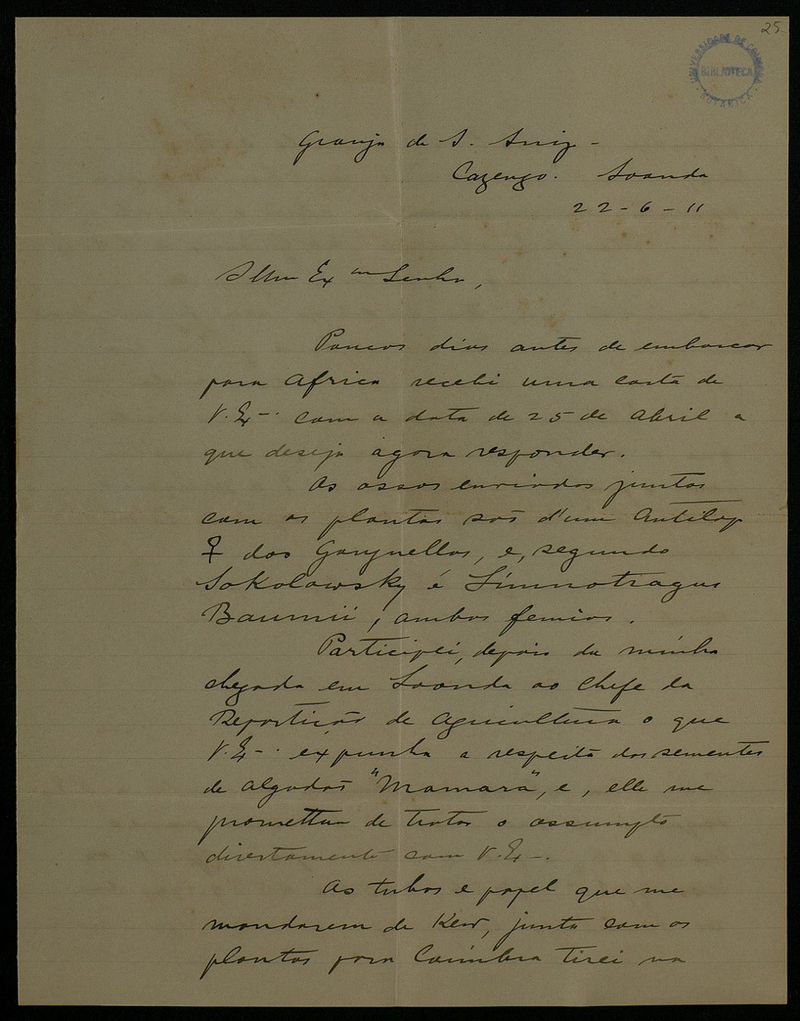 25
UNIVERSIDADE DE COIMBRA
BIBLIOTECA
BOTANICA
Granja de S. Luiz -
Cazengo. Loanda
22-6-11
Illmo Exmo Senhor,
Poucos dias antes de embarcar
para Africa recebi uma carta de
V. Exa. com a data de 25 de Abril a
que desejo agora responder.
Os ossos enviados juntos
com as plantas são d'um Antilop
♀ dos Ganguellas, e, segundo
Sokolowsky é Limnotragus
Baumii, ambos femios.
Participei, depois da minha
chegada em Loanda ao Chefe da
Repartição de Agricultura o que
V. Exa. expunha a respeito das sementes
de algodão "Mamara", e, elle me
prometteu de tratar o assumpto
directamente com V. Exa.
As tubos e papel que me
mandarem de Kew, junto com as
plantas para Coimbra tirei na